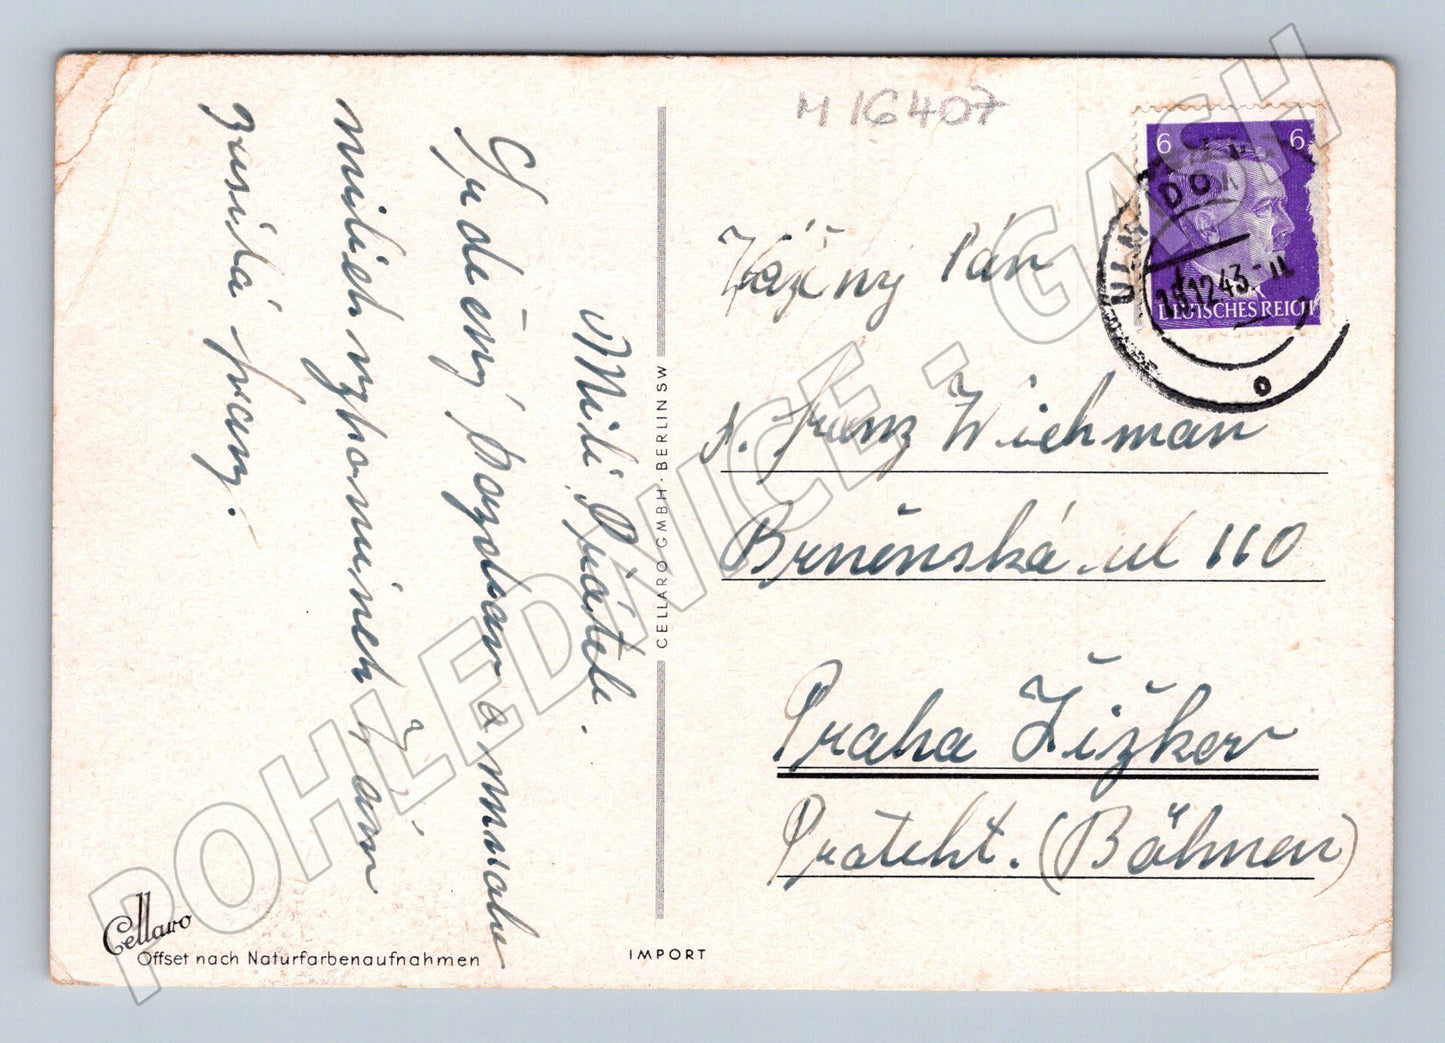 M 16407
6 6
DEUTSCHES REICH
18.12.43.-11
Milí Přátelé.
Srdečný pozdrav a mnoho
milích vzpomínek Vám
zasílá
Vážený Pán
p. Franz Wichman
Brněnská ul 110
Praha Žižkov
Protekt. (Böhmen)
CELLARO GMBH · BERLIN SW
Cellaro
Offset nach Naturfarbenaufnahmen
IMPORT
POHLEDNICE - GASH